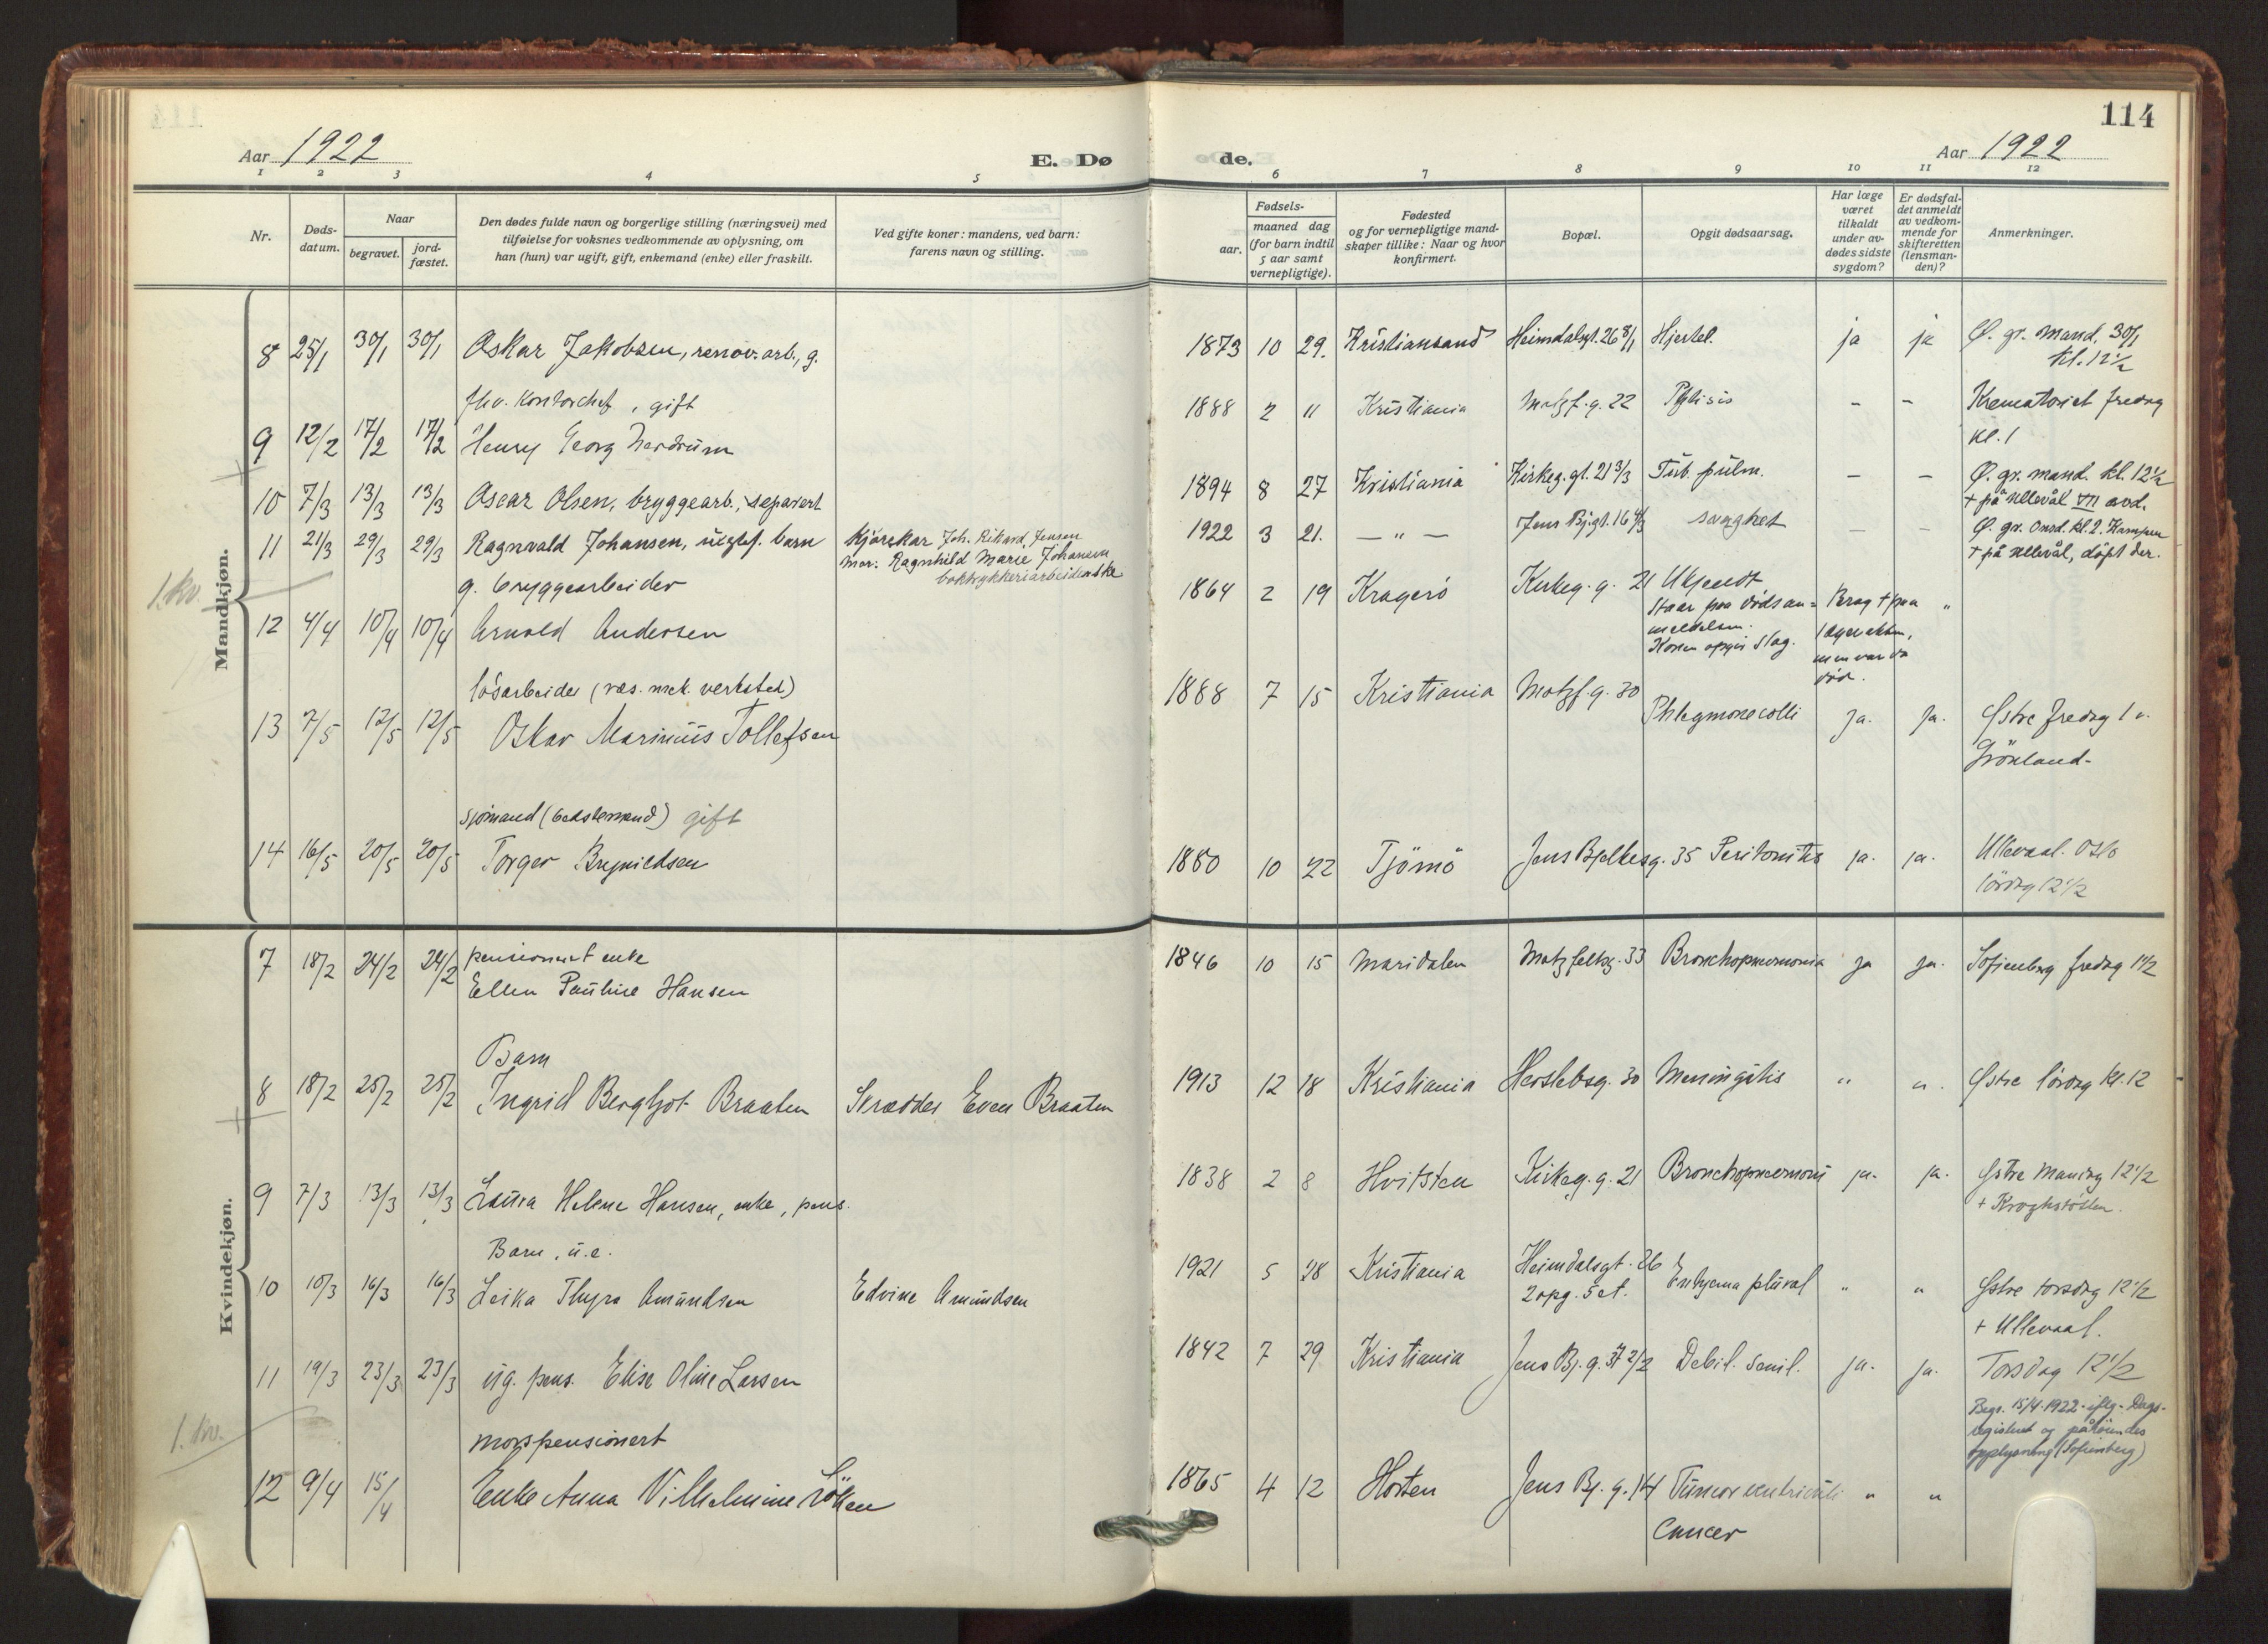 114
Aar 1922
E. Dø
de.
Aar 1922
1 2 3 4 5 6 7 8 9 10 11 12
Nr.
Døds-
datum.
Naar
begravet.
jord-
fæstet.
Den dødes fulde navn og borgerlige stilling (næringsvei) med
tilføielse for voksnes vedkommende av oplysning, om
han (hun) var ugift, gift, enkemand (enke) eller fraskilt.
Ved gifte koner: mandens, ved barn:
farens navn og stilling.
Fødsels-
aar.
maaned dag
(for barn indtil
5 aar samt
vernepligtige).
Fødested
og for vernepligtige mand-
skaper tillike: Naar og hvor
konfirmert.
Bopæl.
Opgit dødsaarsag.
Har læge
været
tilkaldt
under av-
dødes sidste
sygdom?
Er dødsfal-
det anmeldt
av vedkom-
mende for
skifteretten
(lensman-
den)?
Anmerkninger.
Mandkjøn.
8 25/1 30/1 30/1 Oskar Jakobsen, renov.arb., g. 1873 10 29. Kristiansand Heimdalsgt. 26 8/1 Hjertel. ja ja Ø. gr. mand. 30/1
kl. 12½
fhv. kontorchef, gift
9 12/2 17/2 17/2 Henry Georg Nerdrum 1888 2 11 Kristiania Motzf.g. 22 Phtisis - - Krematoriet fredag
kl. 1
10 7/3 13/3 13/3 Oscar Olsen, bryggearb., separert 1894 8 27 Kristiania Kirkeg.gt. 21 3/3 Tub. pulm. - - Ø. gr. mand. kl. 12½
+ på Ullevål VII avd.
11 21/3 29/3 29/3 Ragnvald Johansen, uegtef. barn Kjørekar Joh. Rikard Jensen
Mor: Ragnhild Marie Johansen
boktrykkeriarbeiderske 1922 3 21. - " - Jens Bj.gt. 16 4/3 svaghet - - Ø. gr. Onsd. kl. 2. Kampen
+ på Ullevål, døpt der.
1. kv.
g. bryggearbeider
12 4/4 10/4 10/4 Arnold Andersen 1864 2 19 Kragerö Kirkeg.g. 21 Ukjendt
Staar paa dødsan=
meldelsen.
Konen opgir slag. Brag + paa
lægevakten,
men var da
død. "
løsarbeider (væs. mek. verksted)
13 7/5 12/5 12/5 Oskar Marinius Tollefsen 1888 7 15 Kristiania Motzf.g. 30 Phlegmone colli ja. ja. Østre fredag 1 v.
Grönland.
sjømand (bedstemand) gift
14 16/5 20/5 20/5 Torger Brynildsen 1850 10 22 Tjömö Jens Bjelkesg. 35 Peritonitis ja. ja. Ullevaal. Oslo
lördag 12½
Kvindekjøn.
pensioneret enke
7 18/2 24/2 24/2 Ellen Pauline Hansen 1846 10 15 Maridalen Motzfeltsg. 33 Bronchopneumonia ja ja. Sofienberg fredag 1½
Barn
8 18/2 25/2 25/2 Ingrid Bergljot Braaten Skrædder Even Braaten 1913 12 18 Kristiania Herslebsg. 30 Meningitis " " Østre lördag kl. 12
9 7/3 13/3 13/3 Laura Helene Hansen, enke, pens. 1838 2 8 Hvitsten Kirkeg.g. 21 Bronchopneumoni ja. ja. Østre Mandag 12½
+ Kroghstötten.
Barn, u.e.
10 10/3 16/3 16/3 Leika Thyra Amundsen Edvine Amundsen 1921 5 28 Kristiania Heimdalsgt. 26
2 opg. 5 et. Empyema plural " " Østre torsdag 12½
+ Ullevaal.
11 19/3 23/3 23/3 ug. pens. Elise Oline Larsen 1842 7 29 Kristiania Jens Bj.g. 37 2/2 Debil. senil. ja. ja. Torsdag 12½
1. kv.
morspensionert
12 9/4 15/4 Enke Anna Vilhelmine Lökken 1865 4 12 Horten Jens Bj.g. 14 Tumor ventriculi
Cancer " " Begr. 15/4-1922 iflg. Dags-
registeret og pårörendes
opplysning (Sofienberg)